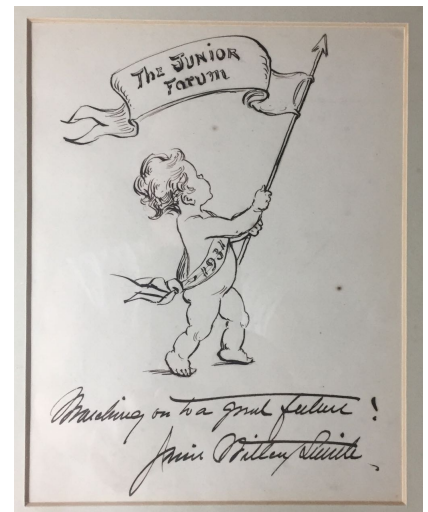 The Junior
Forum
1934
Marching on to a great future!
Jessie Willcox Smith.